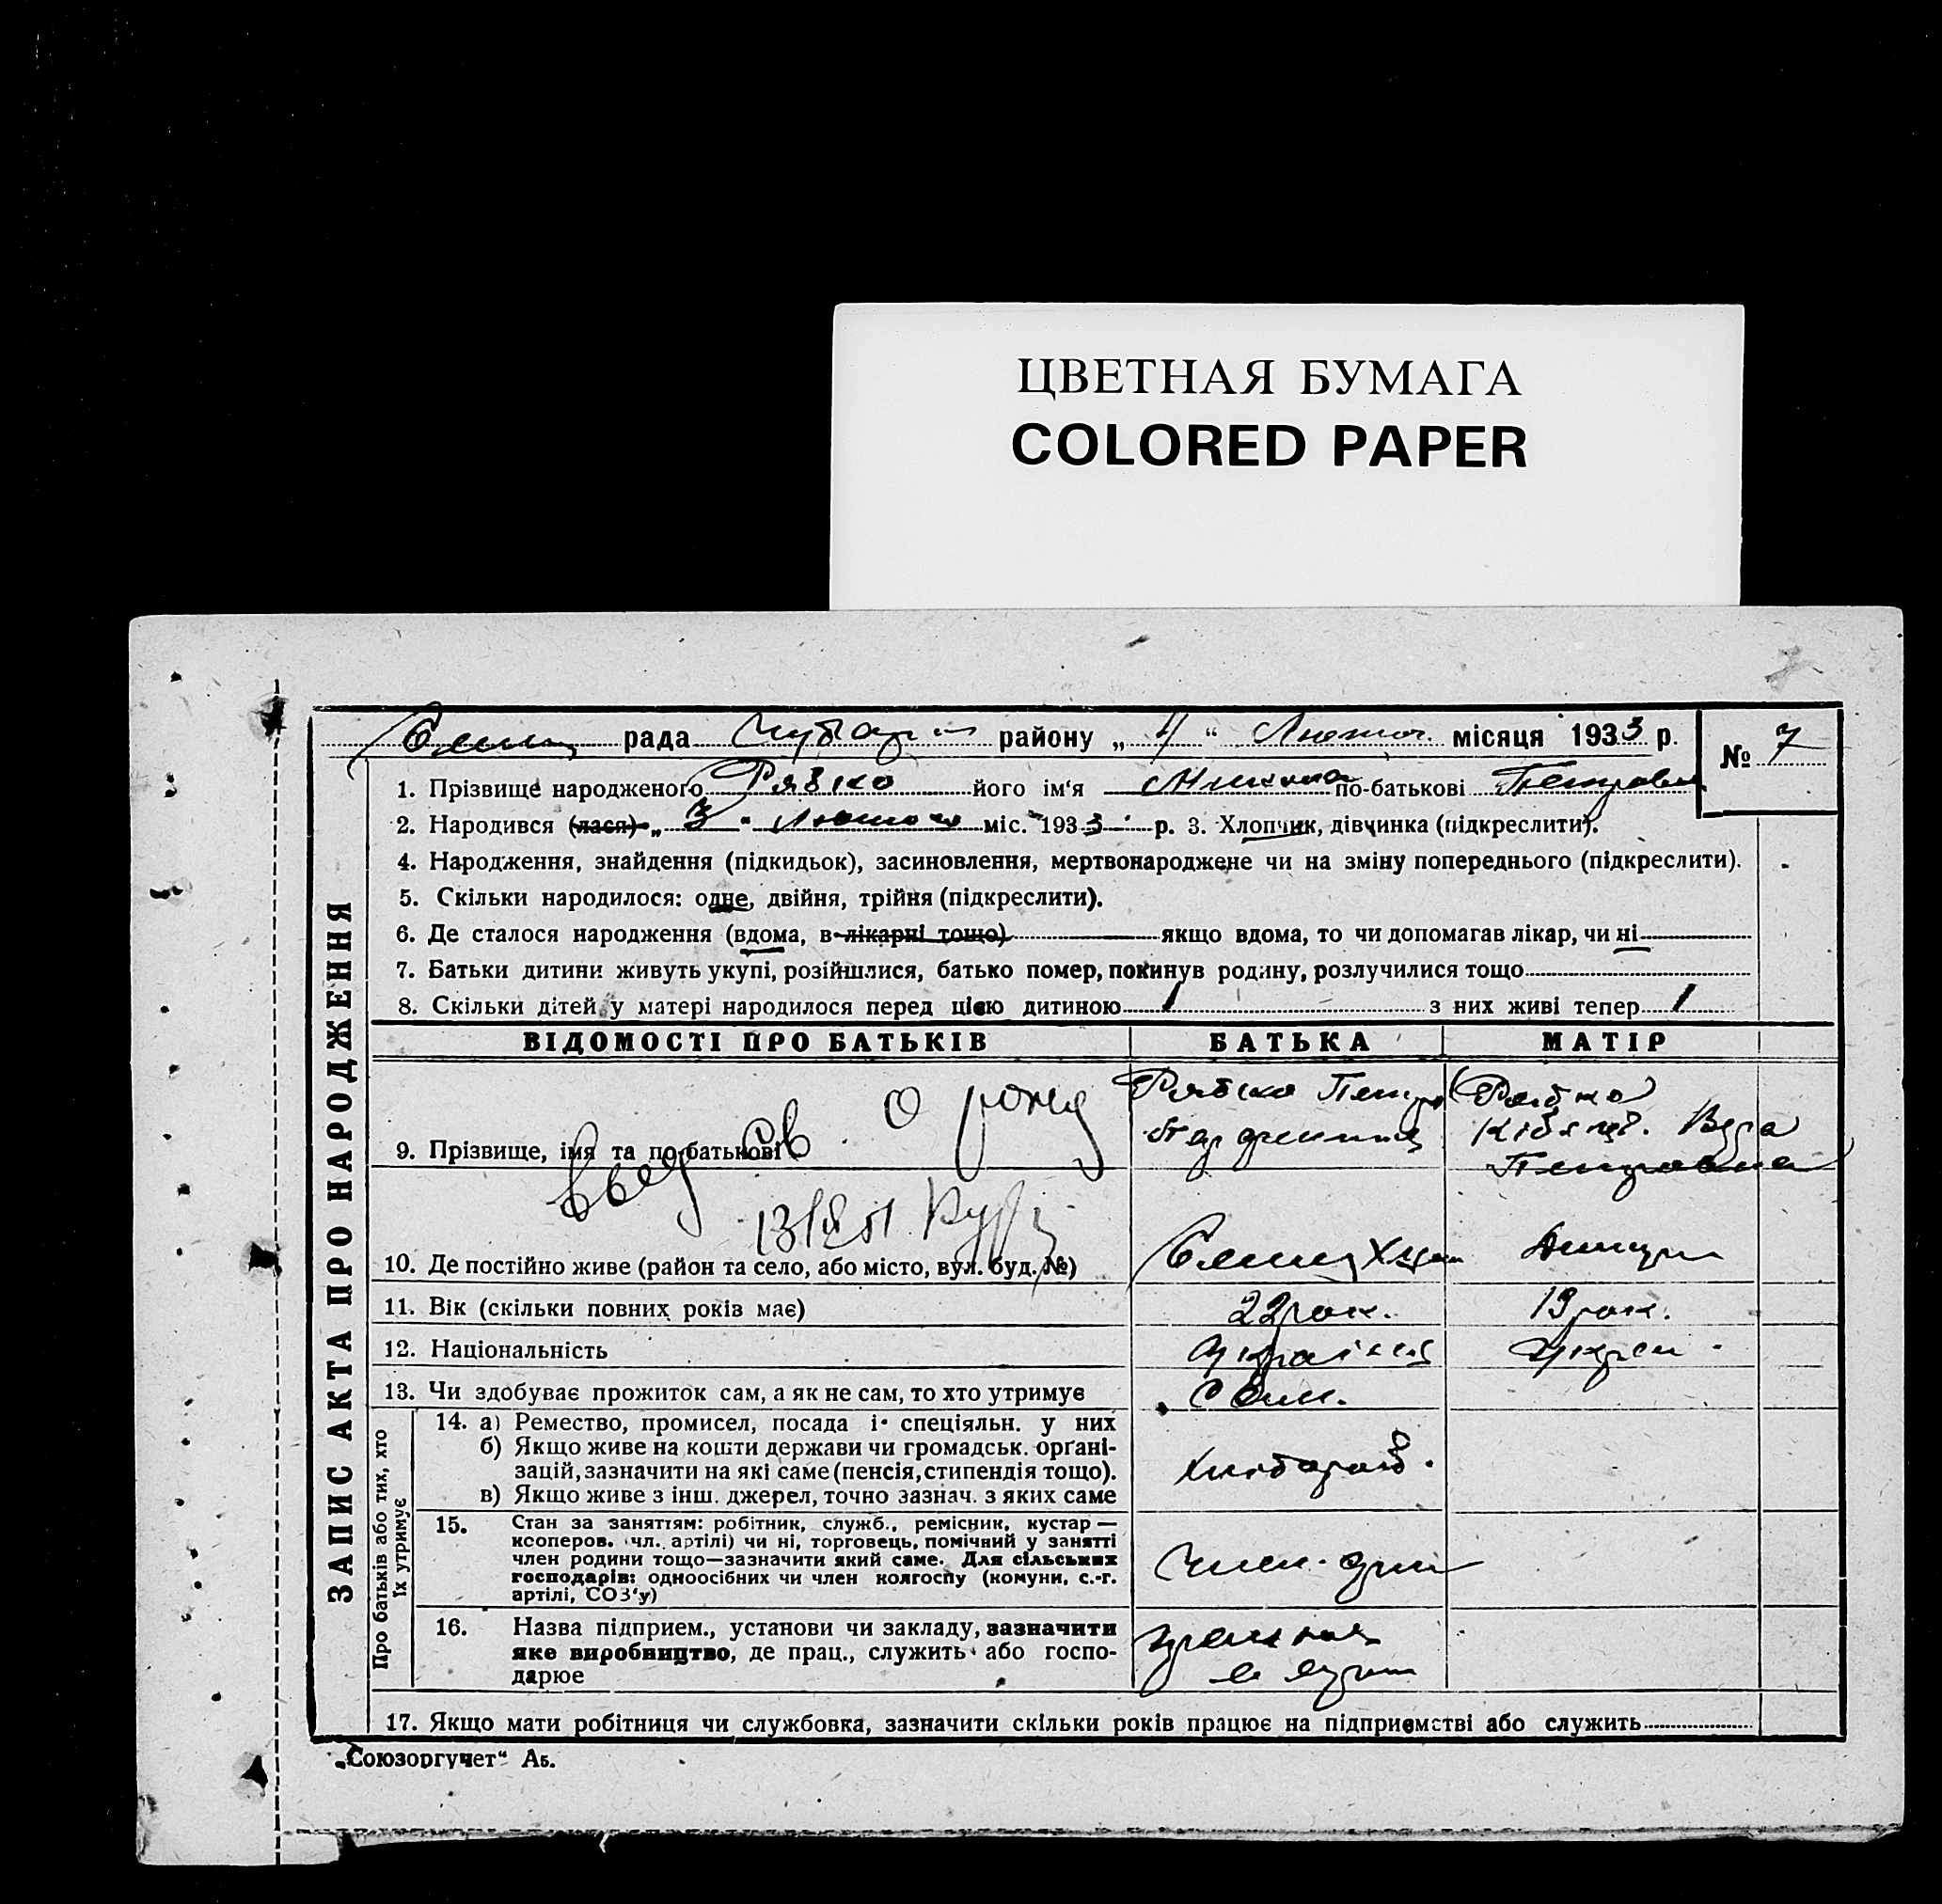 ЦВЕТНАЯ БУМАГА
COLORED PAPER
рада району „ 4 “ Лютого місяця 1933 р.
№ 7
1. Прізвище народженого Рябко його ім'я Микола по-батькові Петрович
2. Народився (лася) „ 3 “ Лютого міс. 1933 р. 3. Хлопчик, дівчинка (підкреслити).
4. Народження, знайдення (підкидьок), засиновлення, мертвонароджене чи на зміну попереднього (підкреслити).
5. Скільки народилося: одне, двійня, трійня (підкреслити).
6. Де сталося народження (вдома, в лікарні тощо) якщо вдома, то чи допомагав лікар, чи ні
7. Батьки дитини живуть укупі, розійшлися, батько помер, покинув родину, розлучилися тощо
8. Скільки дітей у матері народилося перед цією дитиною 1 з них живі тепер 1
ЗАПИС АКТА ПРО НАРОДЖЕННЯ
ВІДОМОСТІ ПРО БАТЬКІВ БАТЬКА МАТІР
Рябко Петро Рябко
Віра
9. Прізвище, імя та по-батькові Петровна
10. Де постійно живе (район та село, або місто, вул. буд. №)
11. Вік (скільки повних років має) 22 рок. 19 рок.
12. Національність Українец Украін
13. Чи здобуває прожиток сам, а як не сам, то хто утримує Сам.
Про батьків або тих, хто
їх утримує
14. а) Ремество, промисел, посада і спеціяльн. у них
б) Якщо живе на кошти держави чи громадськ. орґані-
зацій, зазначити на які саме (пенсія, стипендія тощо). Хлібороб.
в) Якщо живе з інш. джерел, точно зазнач. з яких саме
15. Стан за заняттям: робітник, служб., ремісник, кустар —
кооперов. чл. артілі) чи ні, торговець, помічний у занятті
член родини тощо—зазначити який саме. Для сільських
господарів: одноосібних чи член колгоспу (комуни, с.-г.
артілі, СОЗ'у)
16. Назва підприєм., установи чи закладу, зазначити
яке виробництво, де прац., служить або госпо-
дарює
17. Якщо мати робітниця чи службовка, зазначити скільки років працює на підприємстві або служить
„Союзоргучет“ Аб.